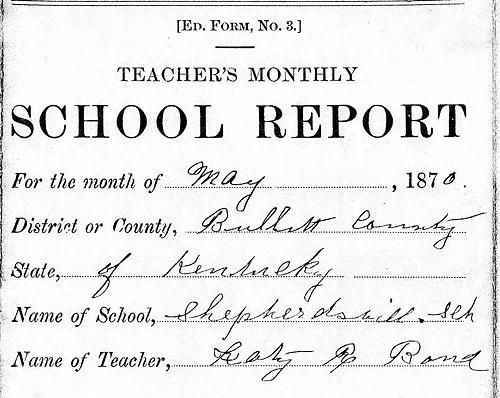 [ED. FORM, NO. 3.]
TEACHER'S MONTHLY
SCHOOL REPORT
For the month of May, 1870.
District or County, Bullitt County
State, of Kentucky
Name of School, Shepherdsvill. Sch
Name of Teacher, Katy R Bond